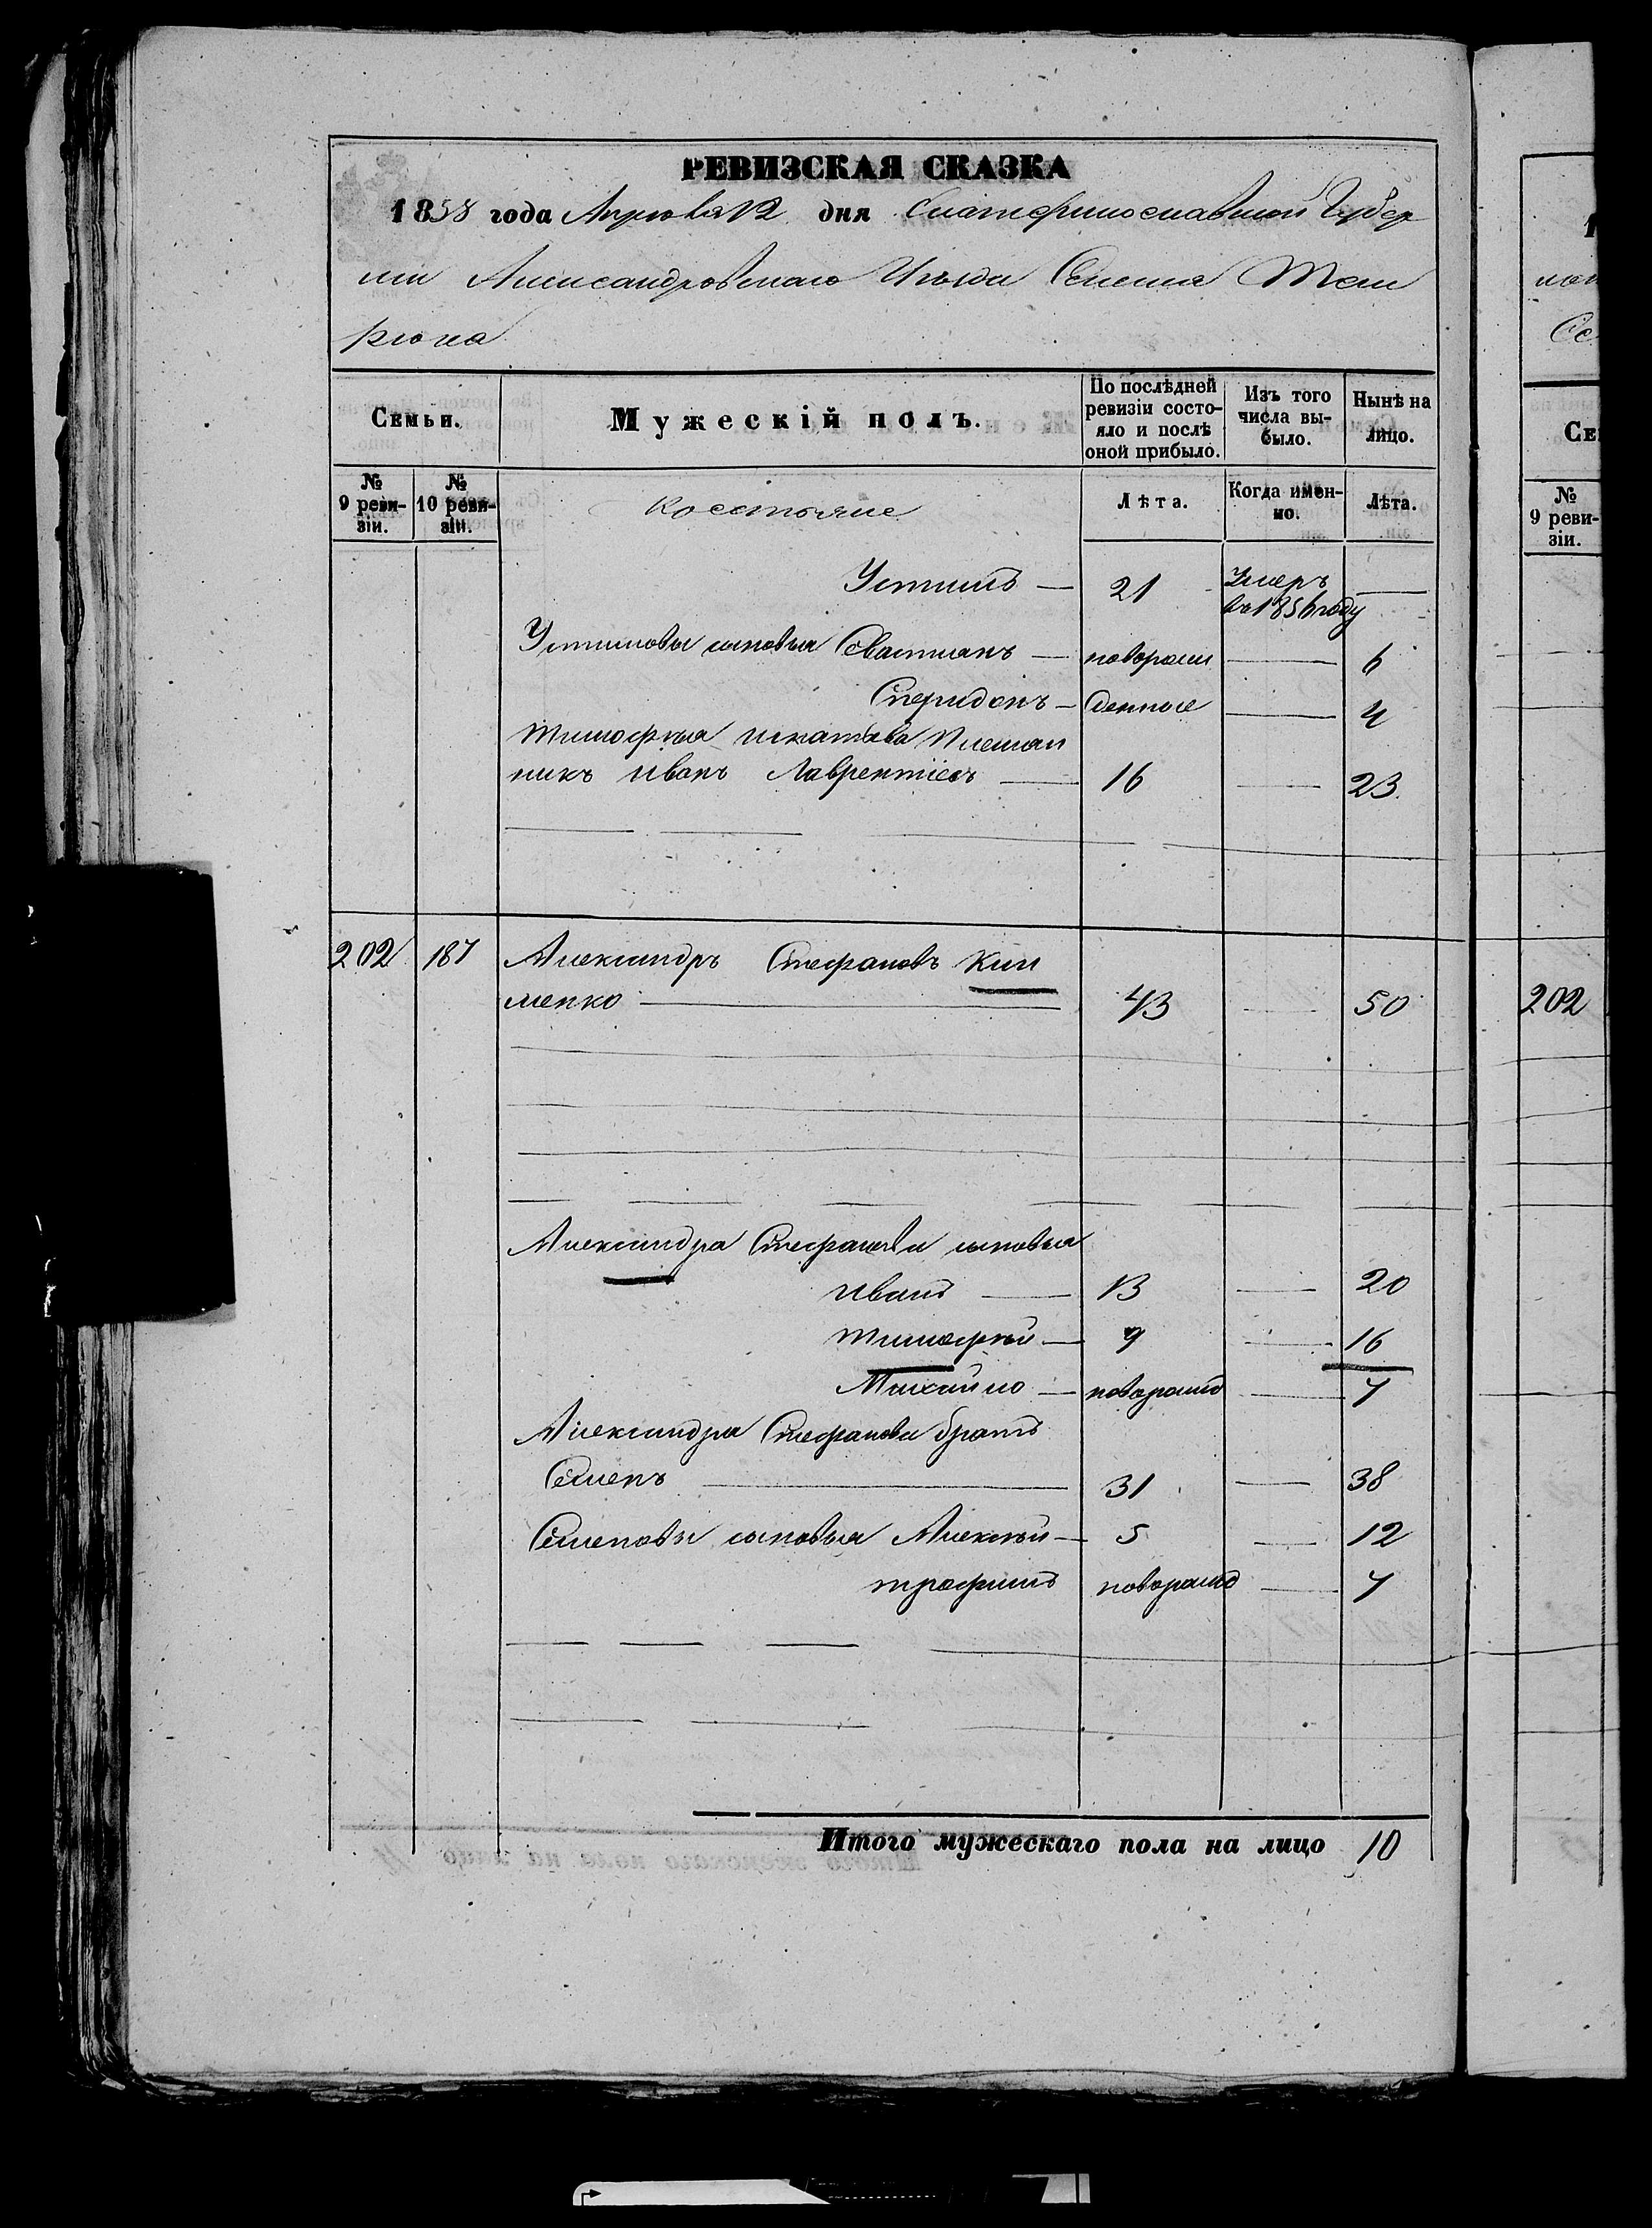 РЕВИЗСКАЯ СКАЗКА
1858 года Апреля 12 дня Екатеринославской Губер
ніи Александровскаго Уезда Селенія Тем
рюка
Семьи.
Мужескій полъ.
По послѣдней ревизіи состояло и послѣ оной прибыло.
Изъ того числа выбыло.
Нынѣ на лицо.
№ 9 ревизіи.
№ 10 ревизіи.
Лѣта.
Когда именно.
Лѣта.
Устимъ — 21 Умеръ в 1856 году —
Устимовы сыновья Севастіанъ — новорож — 6
Спиридонъ — денные — 4
Тимофѣя Игнатова Племян
никъ Иванъ Лаврентіевъ — 16 — 23
202 187 Александръ Стефановъ Кли
менко — 43 — 50
202
Александра Стефанова сыновья
Иванъ — 13 — 20
Тимофей — 9 — 16
Михайло — новорожд — 7
Александра Стефанова братъ
Семенъ — 31 — 38
Семеновы сыновья Алексѣй — 5 — 12
Трофимъ новорожд — 7
Итого мужескаго пола на лицо 10
№ 9 ревизіи.